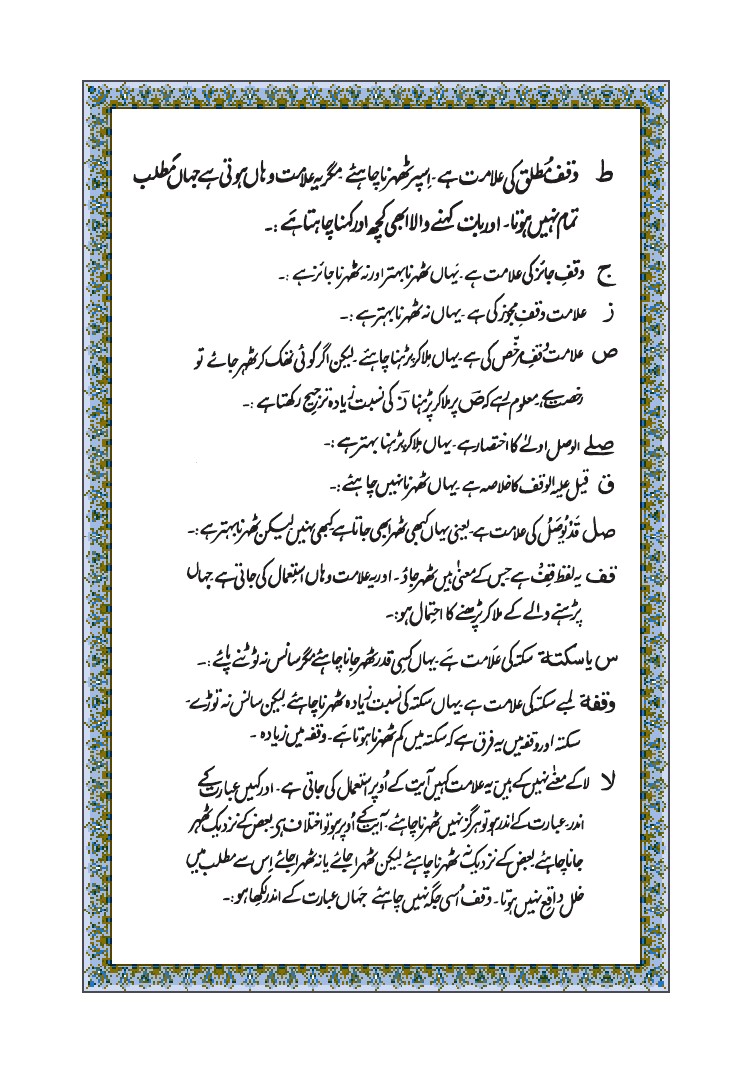 ط وقف مُطلق کی علامت ہے۔ اِسپر ٹھہرنا چاہئے مگر یہ علامت وہاں ہوتی ہے جہاں مَطلب
تمام نہیں ہوتا۔ اور بات کہنے والا ابھی کُچھ اور کہنا چاہتا ہے :۔
ج وقفِ جائز کی علامت ہے۔ یہاں ٹھہرنا بہتر اور نہ ٹھہرنا جائز ہے :۔
ز علامت وقفِ مجوز کی ہے۔ یہاں نہ ٹھہرنا بہتر ہے :۔
ص علامت وقفِ مرخّص کی ہے۔ یہاں مِلا کر پڑہنا چاہئے۔ لیکن اگر کوئی تھک کر ٹھہر جائے تو
رخصت ہے۔ معلوم رہے کہ صؔ پر ملا کر پڑہنا زؔ کی نسبت زیادہ ترجیح رکھتا ہے :۔
صلے الوصل اولےٰ کا اختصار ہے۔ یہاں مِلا کر پڑہنا بہتر ہے :۔
ق قیل علیہ الوقف کا خلاصہ ہے۔ یہاں ٹھہرنا نہیں چاہئے :۔
صل قَدْ یُوصَلُ کی علامت ہے۔ یعنی یہاں کبھی ٹھہرا بھی جاتا ہے کبھی نہیں لیکن ٹھہرنا بہتر ہے :۔
قف یہ لفظ قِفْ ہے جس کے معنیٰ ہیں ٹھہر جاؤ۔ اور یہ علامت وہاں استِعمال کی جاتی ہے جہاں
پڑہنے والے کے ملا کر پڑھنے کا احتِمال ہو :۔
س یا سکتة سکتہ کی علامت ہے۔ یہاں کسِی قدر ٹھہر جانا چاہئے مگر سانس نہ ٹوٹنے پائے :۔
وقفة لمبے سکتہ کی علامت ہے۔ یہاں سکتہ کی نسبت زیادہ ٹھہرنا چاہئے لیکن سانس نہ توڑے۔
سکتہ اور وقفہ میں یہ فرق ہے کہ سکتہ میں کم ٹھہرنا ہوتا ہے۔ وقفہ میں زیادہ ۔
لا لا کے معنٰے نہیں کے ہیں۔ یہ علامت کہیں آیت کے اُوپر استِعمال کی جاتی ہے۔ اور کہیں عبارت کے
اندر۔ عبارت کے اندر ہو تو ہرگز نہیں ٹھہرنا چاہئے۔ آیت کے اُوپر ہو تو اختلاف ہے بعض کے نزدیک ٹھہر
جانا چاہئے بعض کے نزدیک نہ ٹھہرنا چاہئے لیکن ٹھہرا جائے یا نہ ٹھہرا جائے اِس سے مطلب میں
خلل واقع نہیں ہوتا۔ وقف اُسی جگہ نہیں چاہئے جہاں عبارت کے اندر لکھا ہو :۔